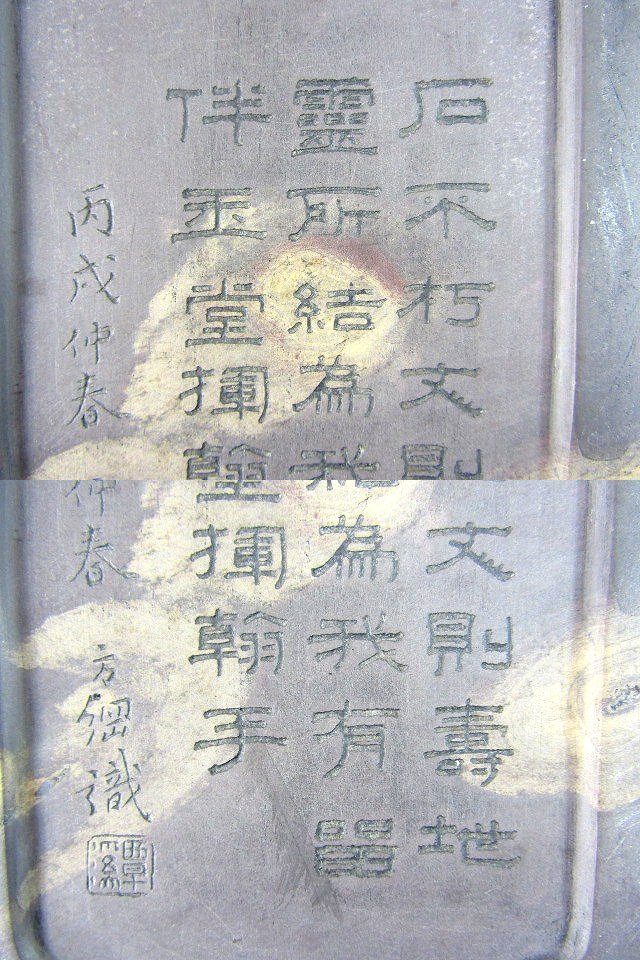 石不朽文則壽地
靈所結為我有
伴玉堂揮翰手
丙戌仲春 方綱識
覃溪